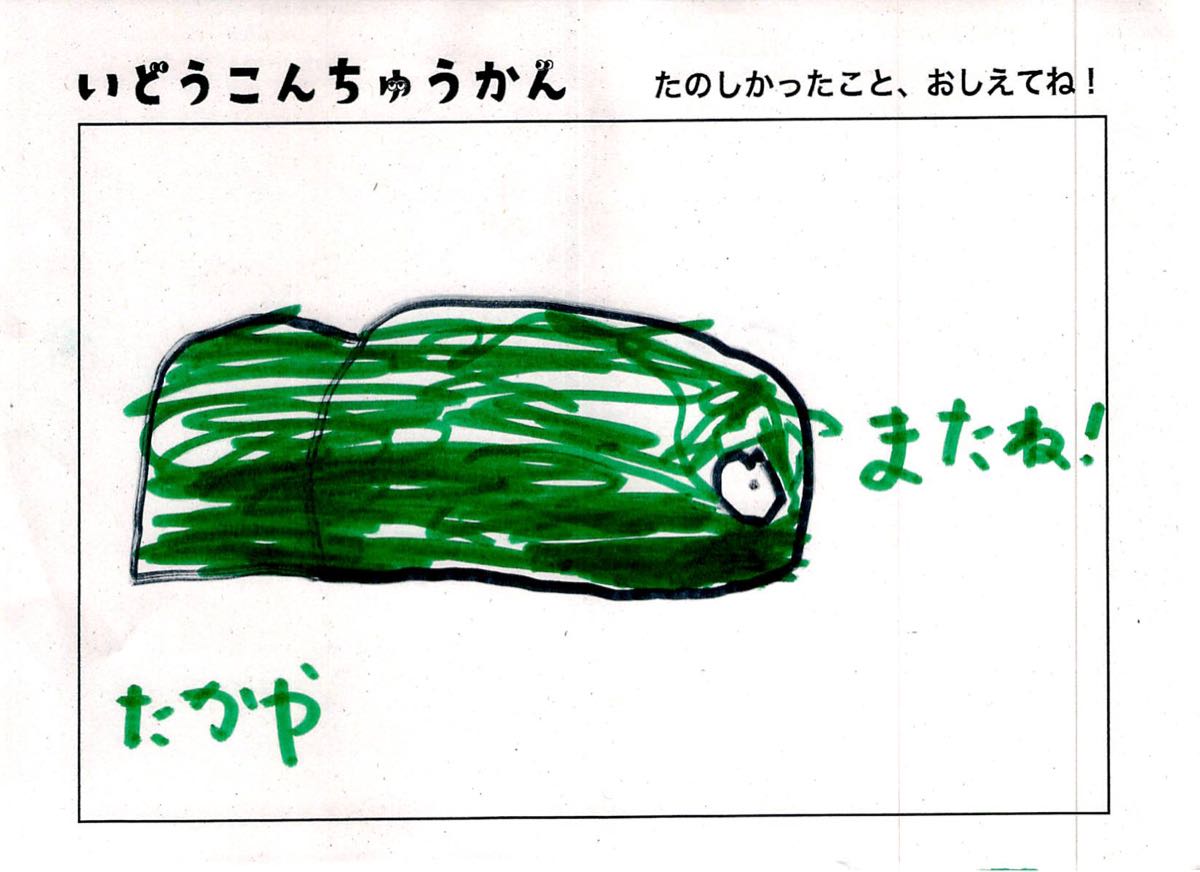 いどうこんちゅうかん
たのしかったこと、おしえてね！
またね！
たかや